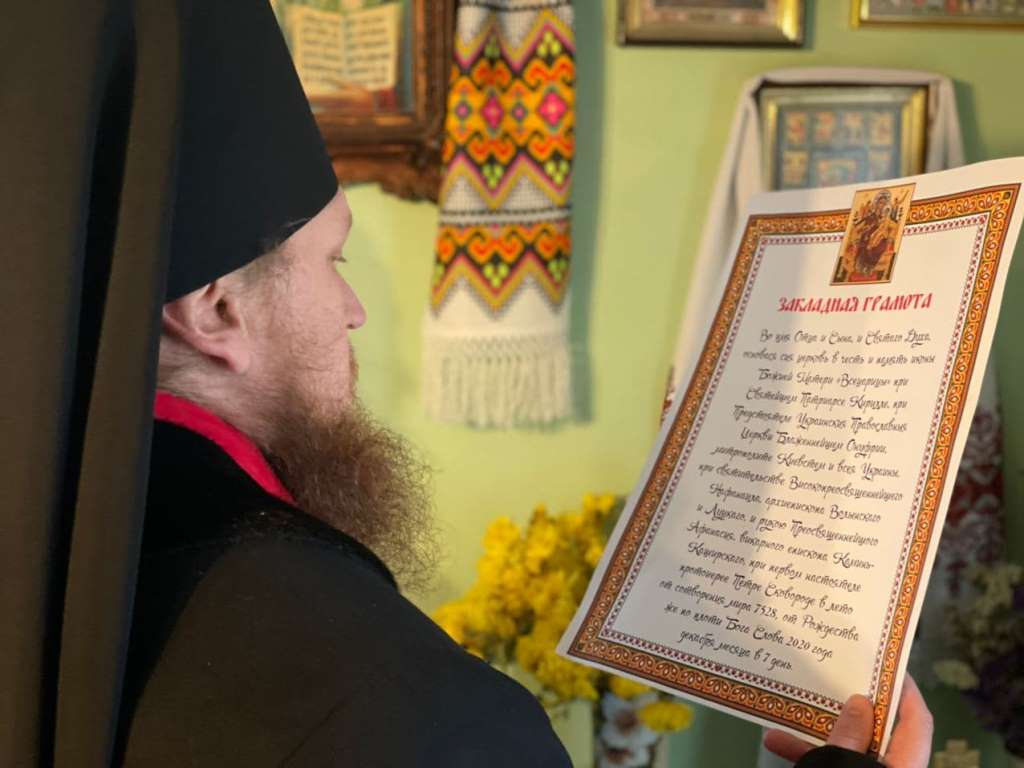 ЗАКЛАДНАЯ ГРАМОТА
Во имя Отца и Сына, и Святаго Духа,
основася сия церковь в честь и память иконы
Божией Матери «Всецарицы» при
Святейшем Патриархе Кирилле, при
Предстоятеле Украинския Православныя
Церкви Блаженнейшем Онуфрии,
митрополите Киевстем и всея Украины,
при святительстве Високопреосвященнейшего
Нафанаила, архиепископа Волынского
и Луцкаго, и рукою Преосвященнейшого
Афанасия, викарного епископа Каминь-
Каширского, при первом настоятеле
протоиерее Петре Сковороде в лето
от сотворения мира 7528, от Рождества
же по плоти Бога Слова 2020 года
декабря месяца в 7 день.